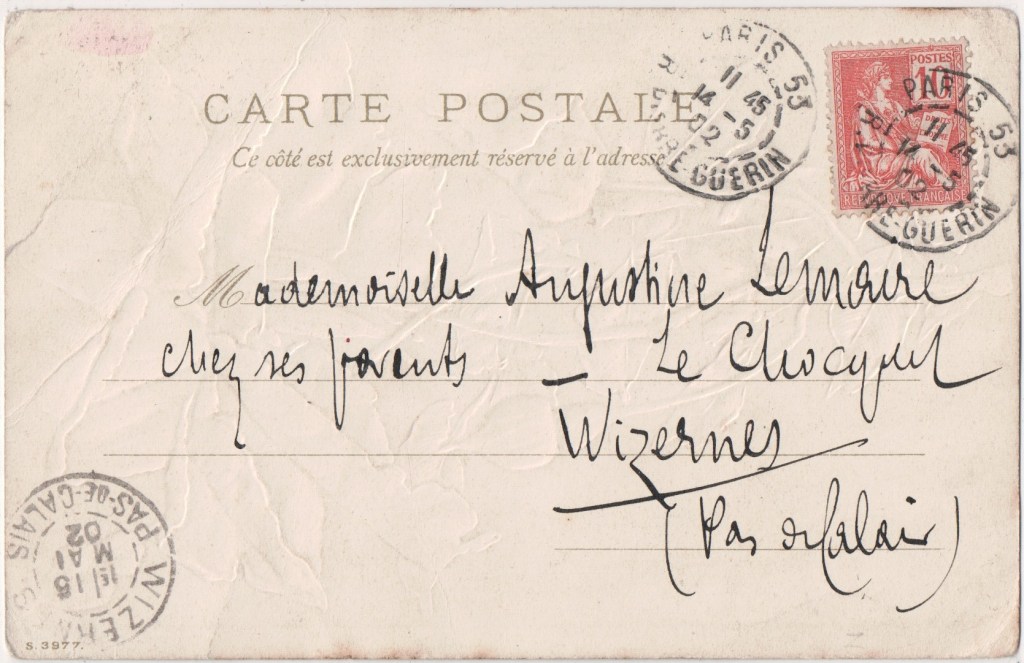 CARTE POSTALE
Ce côté est exclusivement réservé à l'adresse
PARIS 53
11 45
14 - 5
02
R. GUERIN
POSTES
10
REPUBLIQUE FRANÇAISE
PARIS 53
11 45
14 - 5
02
RRE-GUERIN
Mademoiselle Augustine Lemaire
chez ses parents Le Chocquel
Wizernes
(Pas de Calais)
WIZERNES
PAS-DE-CALAIS
15
MAI
02
S. 3977.